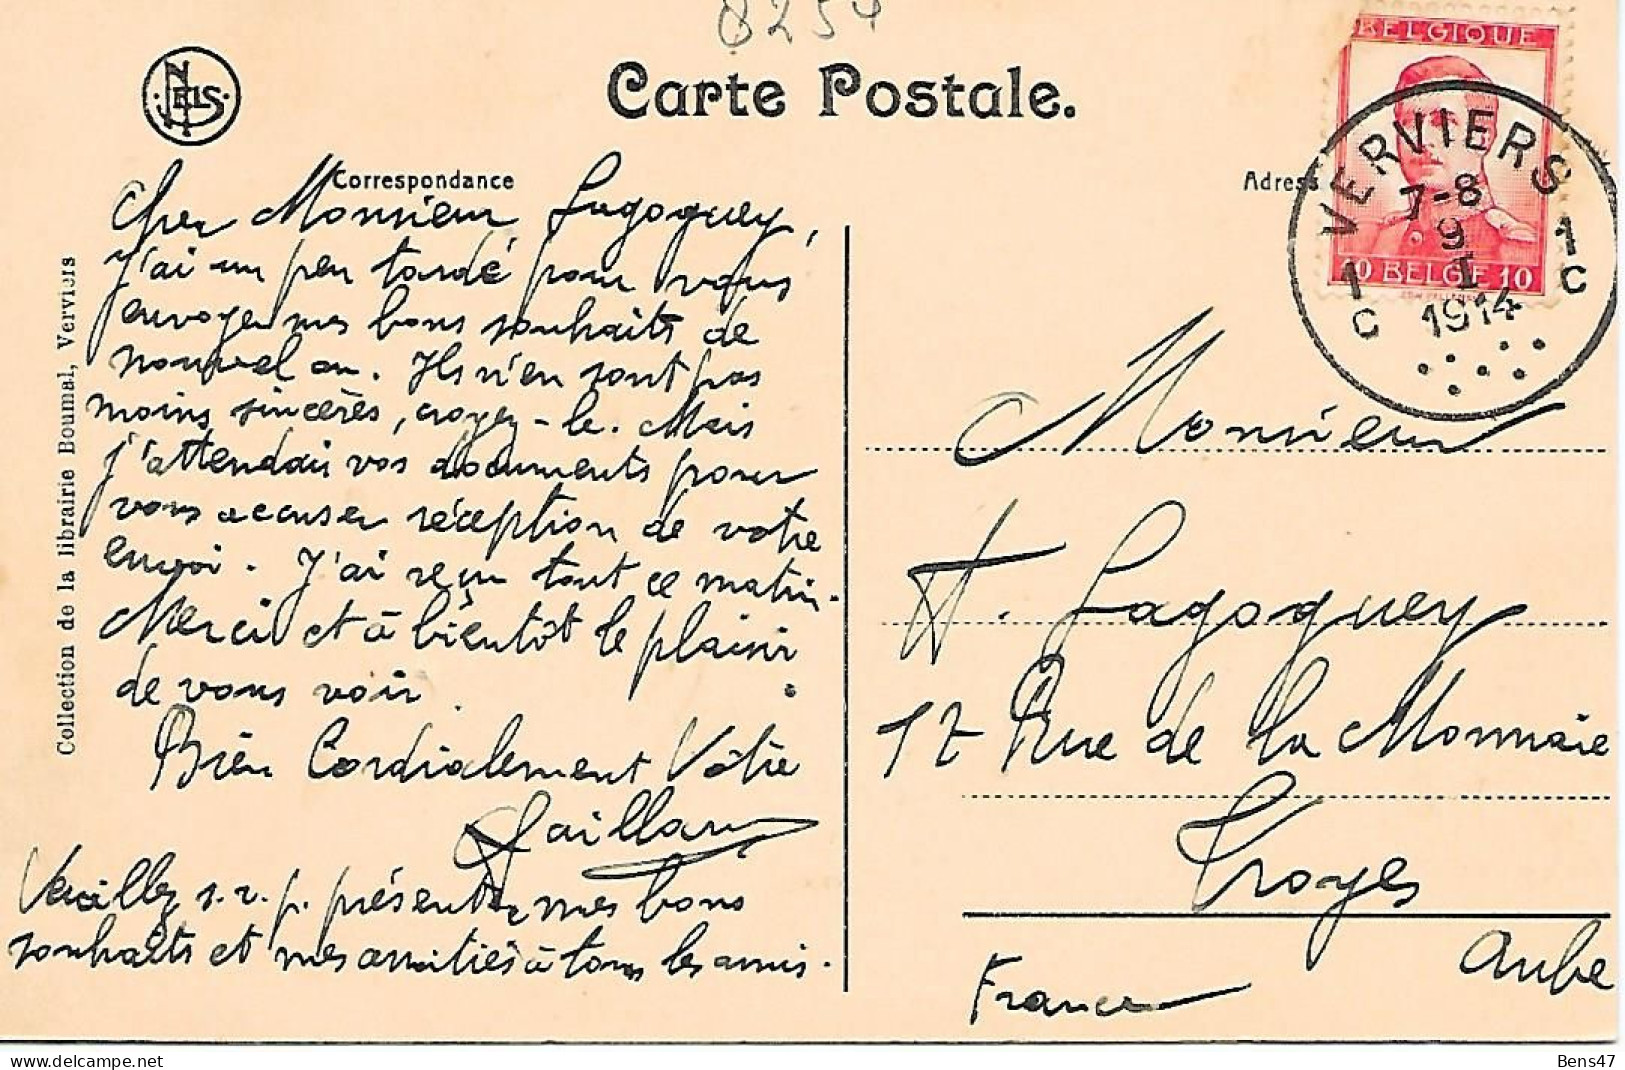 8254
NELS
Carte Postale.
Correspondance
Adresse
BELGIQUE
10 BELGIË 10
VERVIERS
7-8
9
I
1914
1 C
1 C
Collection de la librairie Boumal, Verviers
Cher Monsieur Lagoguey,
J'ai un peu tardé pour vous
envoyer mes bons souhaits de
nouvel an. Ils n'en sont pas
moins sincères, croyez-le. Mais
j'attendais vos documents pour
vous accuser réception de votre
envoi. J'ai reçu tout ce matin.
Merci et à bientôt le plaisir
de vous voir.
Bien Cordialement Vôtre
Veuillez s. v. p. présenter mes bons
souhaits et mes amitiés à tous les amis.
Monsieur
A. Lagoguey
17 Rue de la Monnaie
Troyes
Aube
France
>> Delcampe.net
Bens47